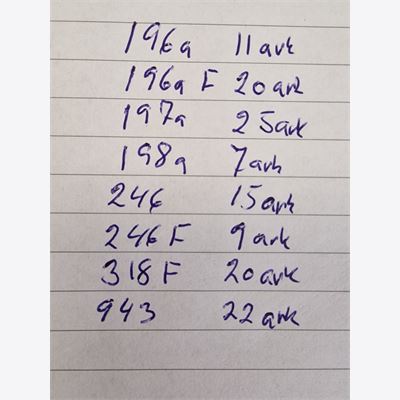 196a 11 ark
196a F 20 ark
197a 25 ark
198a 7 ark
246 15 ark
246 F 9 ark
318 F 20 ark
943 22 ark